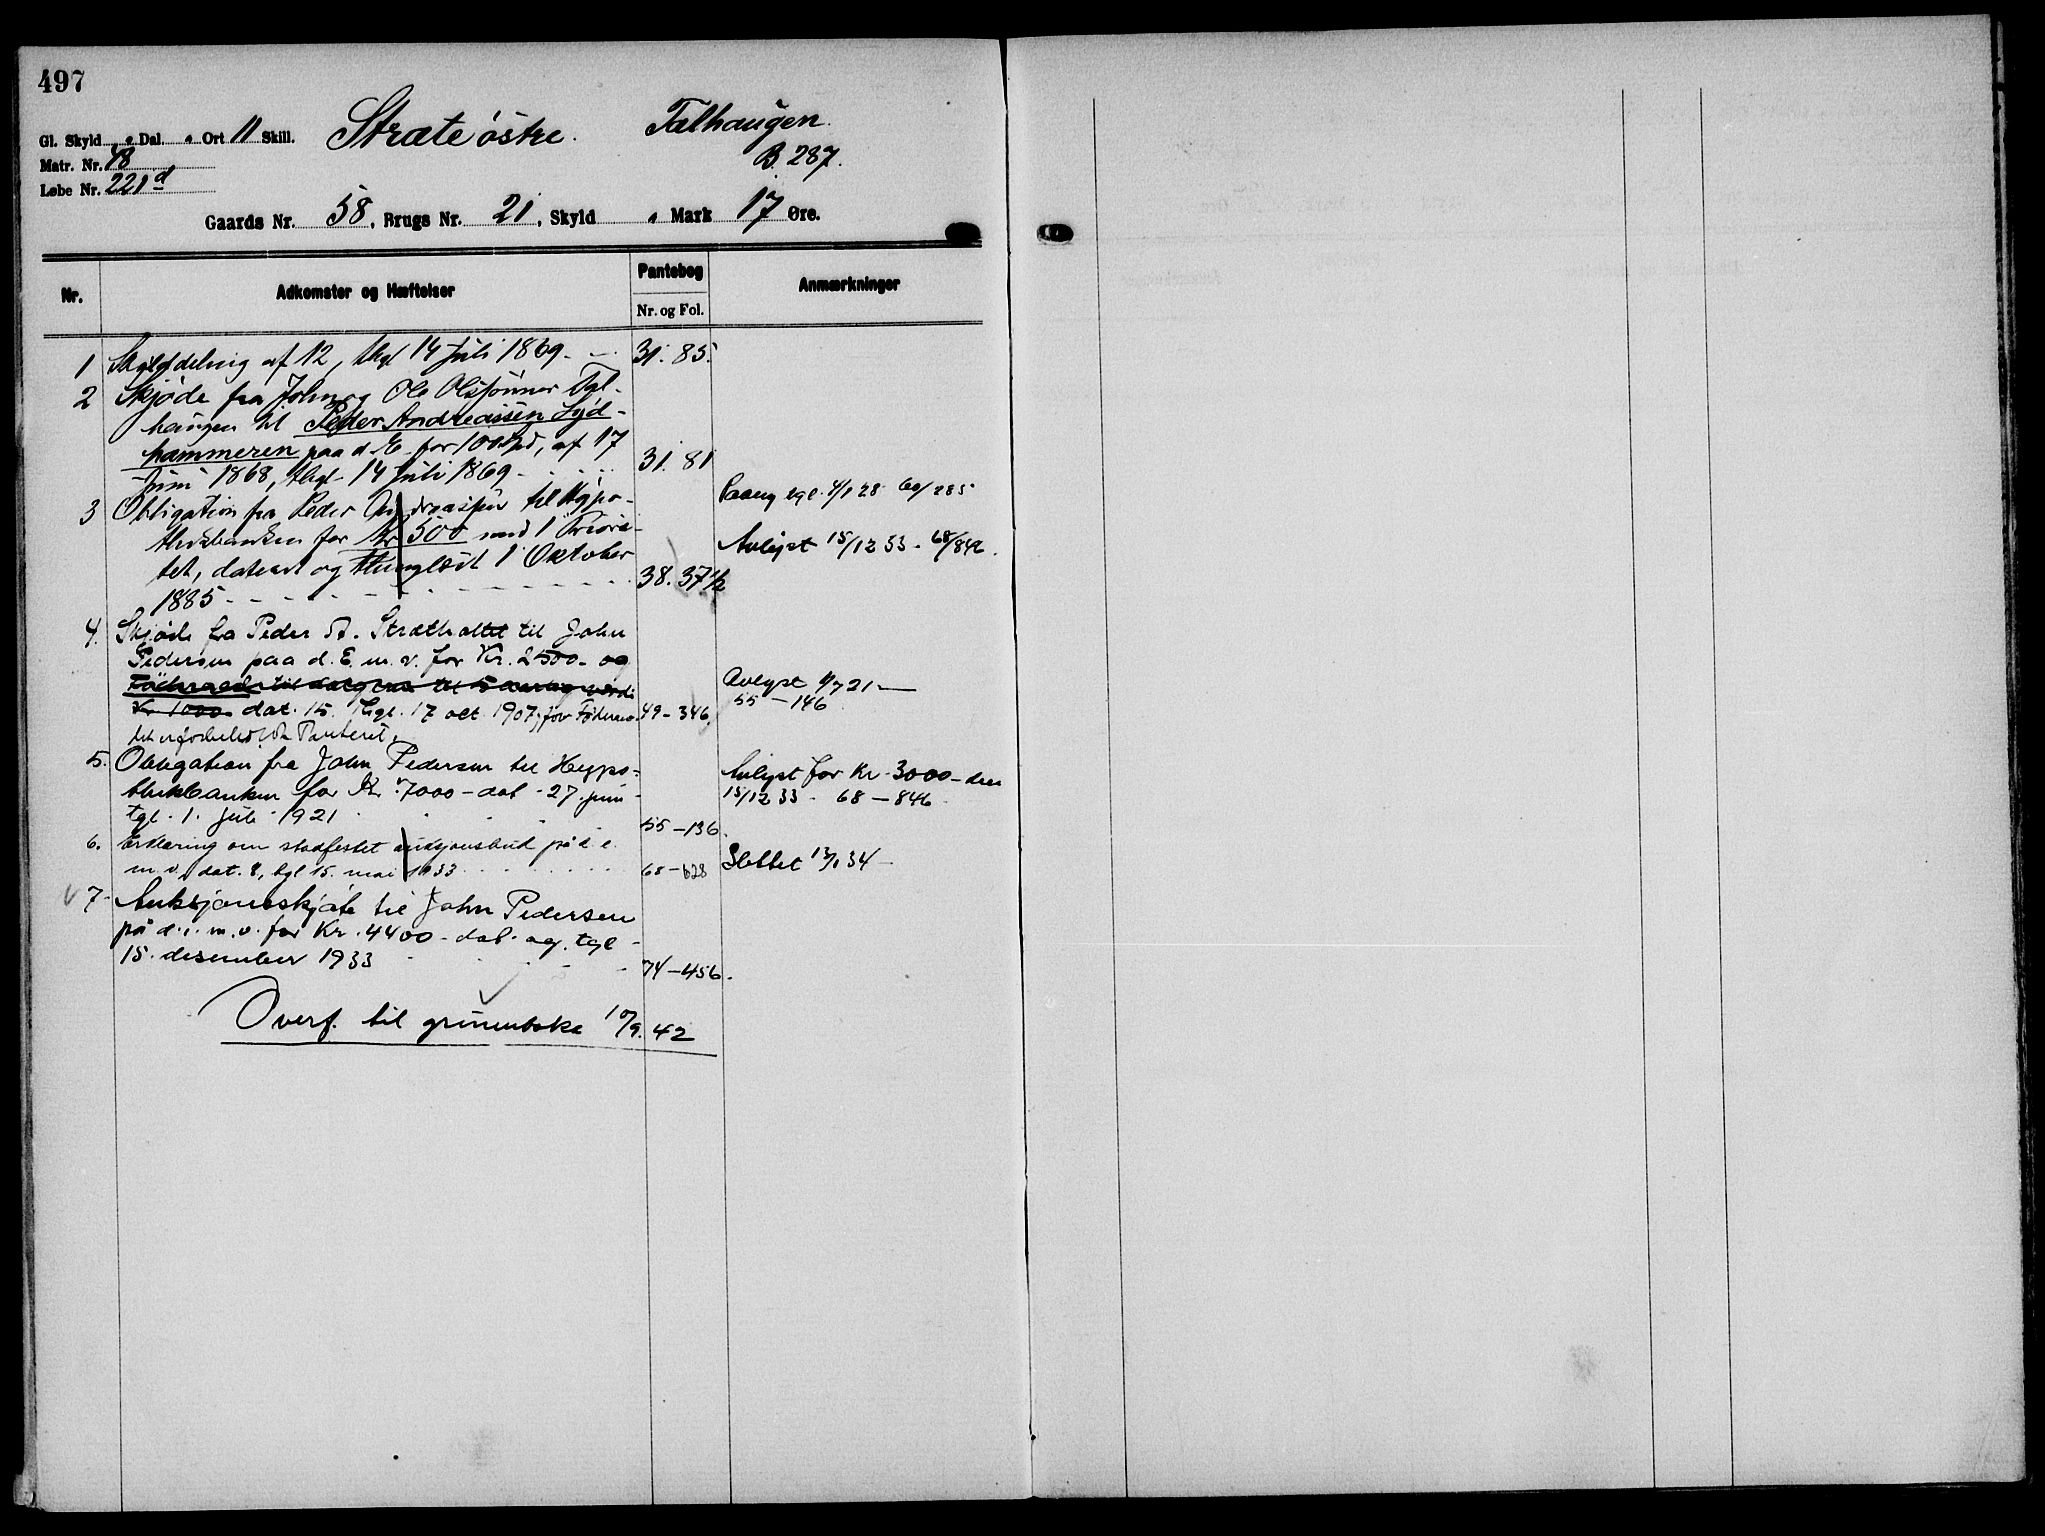 497
Gl. Skyld " Dal. " Ort 11 Skill. Stræte østre. Tælhaugen.
Matr. Nr. 48 B. 287.
Løbe Nr. 221 d
Gaards Nr. 58, Brugs Nr. 21, Skyld " Mark 17 Øre.
Nr. Adkomster og Hæftelser Pantebog Anmærkninger
Nr. og Fol.
1 Skylddeling af 12, thgl 14 Juli 1869. 31. 85.
2 Skjøde fra John og Ole Olssønner Tæl-
haugen til Peder Andreassen Syd-
hammeren paa d. E. for 100 Spd, af 17
Juni 1868, thgl 14 Juli 1869. 31. 81
3 Obligation fra Peder Andreassen til Hypo-
thekbanken for Kr 500 med 1 Priori-
tet, dateret og thinglæst 1 Oktober
1885 38. 37 1/2
tgl. 4/1 28 60/285
Avlyst 15/12 33 - 68/846.
4. Skjøde fra Peder A. Strætholtet til John
Pedersen paa d. E. m. v. for Kr. 2500 - og
Føderaad til
Kr 1000 dat. 15. thgl. 17 okt. 1907, for Føderaa-
det er forbeholdt Panteret. 49-346.
Avlyst 1/7 21 -
55 - 146
5. Obligation fra John Pedersen til Hypo-
thekbanken for Kr. 7000 - dat. 27. juni
tgl. 1. juli 1921 55-136.
Avlyst for Kr. 3000 - den
15/12 33 - 68 - 846
6. Erklæring om stadfestet auksjonsbud på d. e.
m. v. dat. 8, tgl 15. mai 1933 68-628
Slettet 13/1 34 -
7. Auksjonsskjøte til John Pedersen
på d. e. m. v. for Kr. 4400 - dat. og tgl
15. desember 1933 74-456.
Overf. til grunnboka 10/9. 42